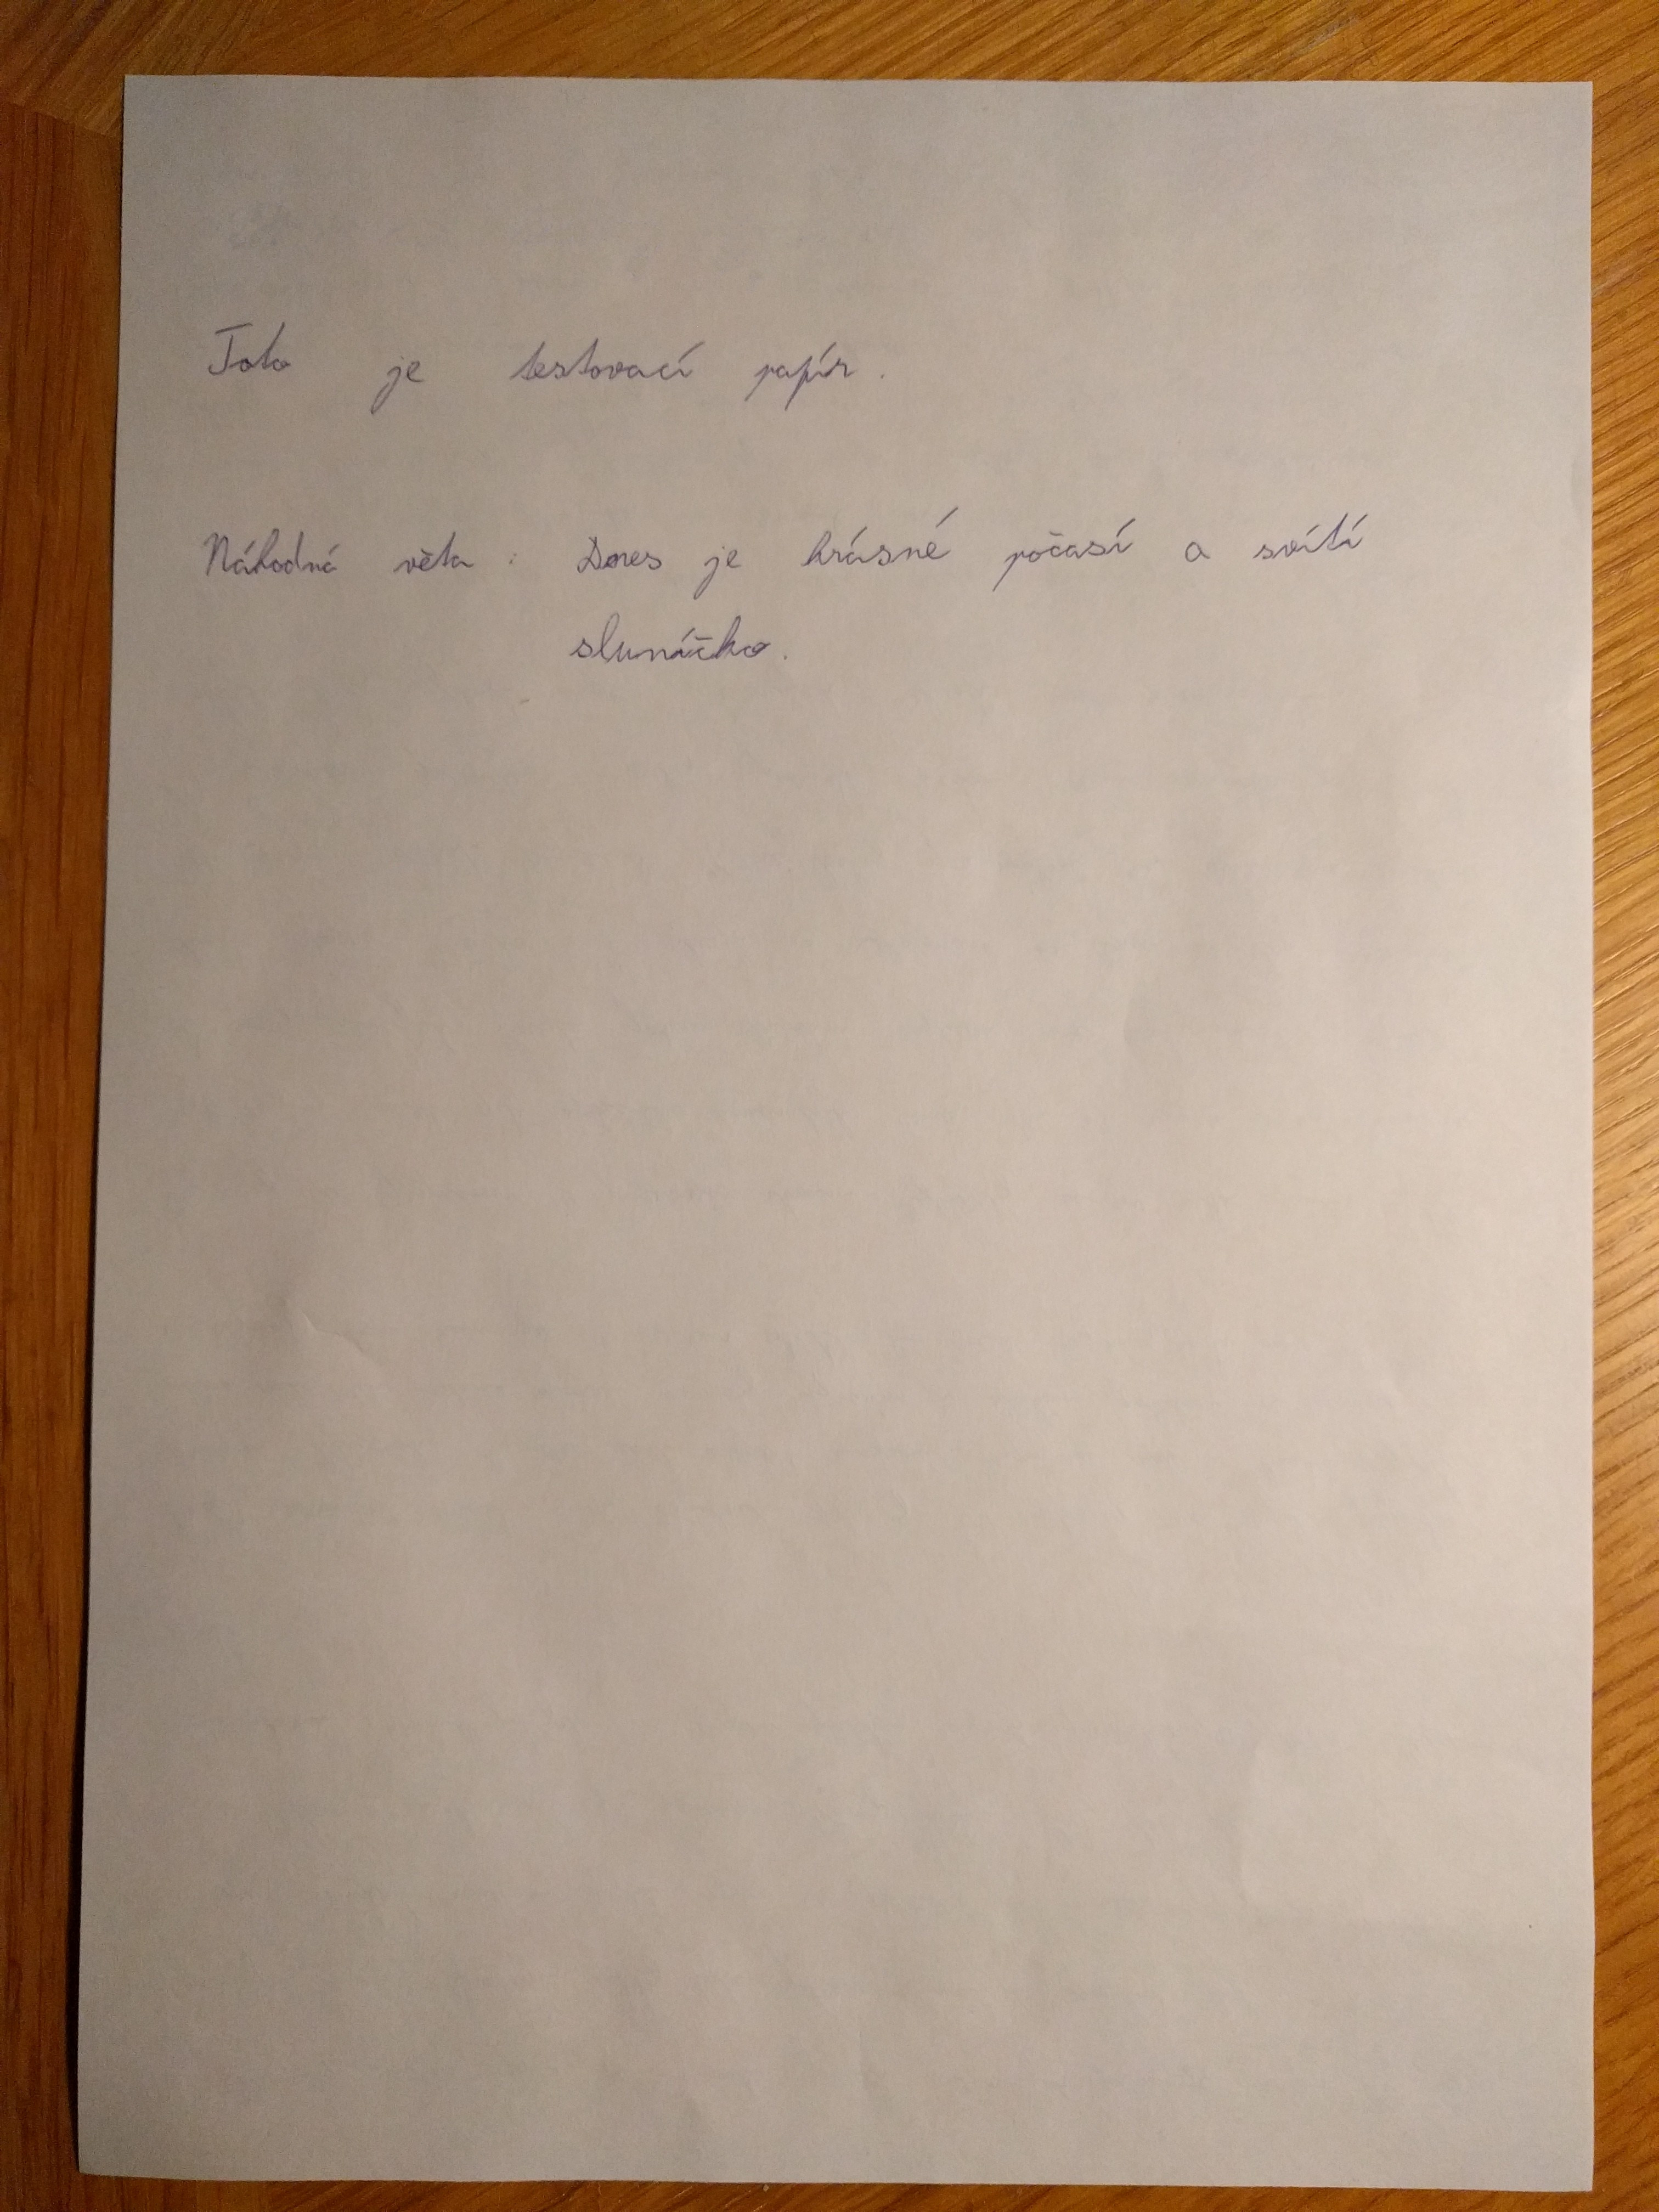 Toto je testovací papír.
Náhodná věta: Dnes je krásné počasí a svítí
slunáčko.